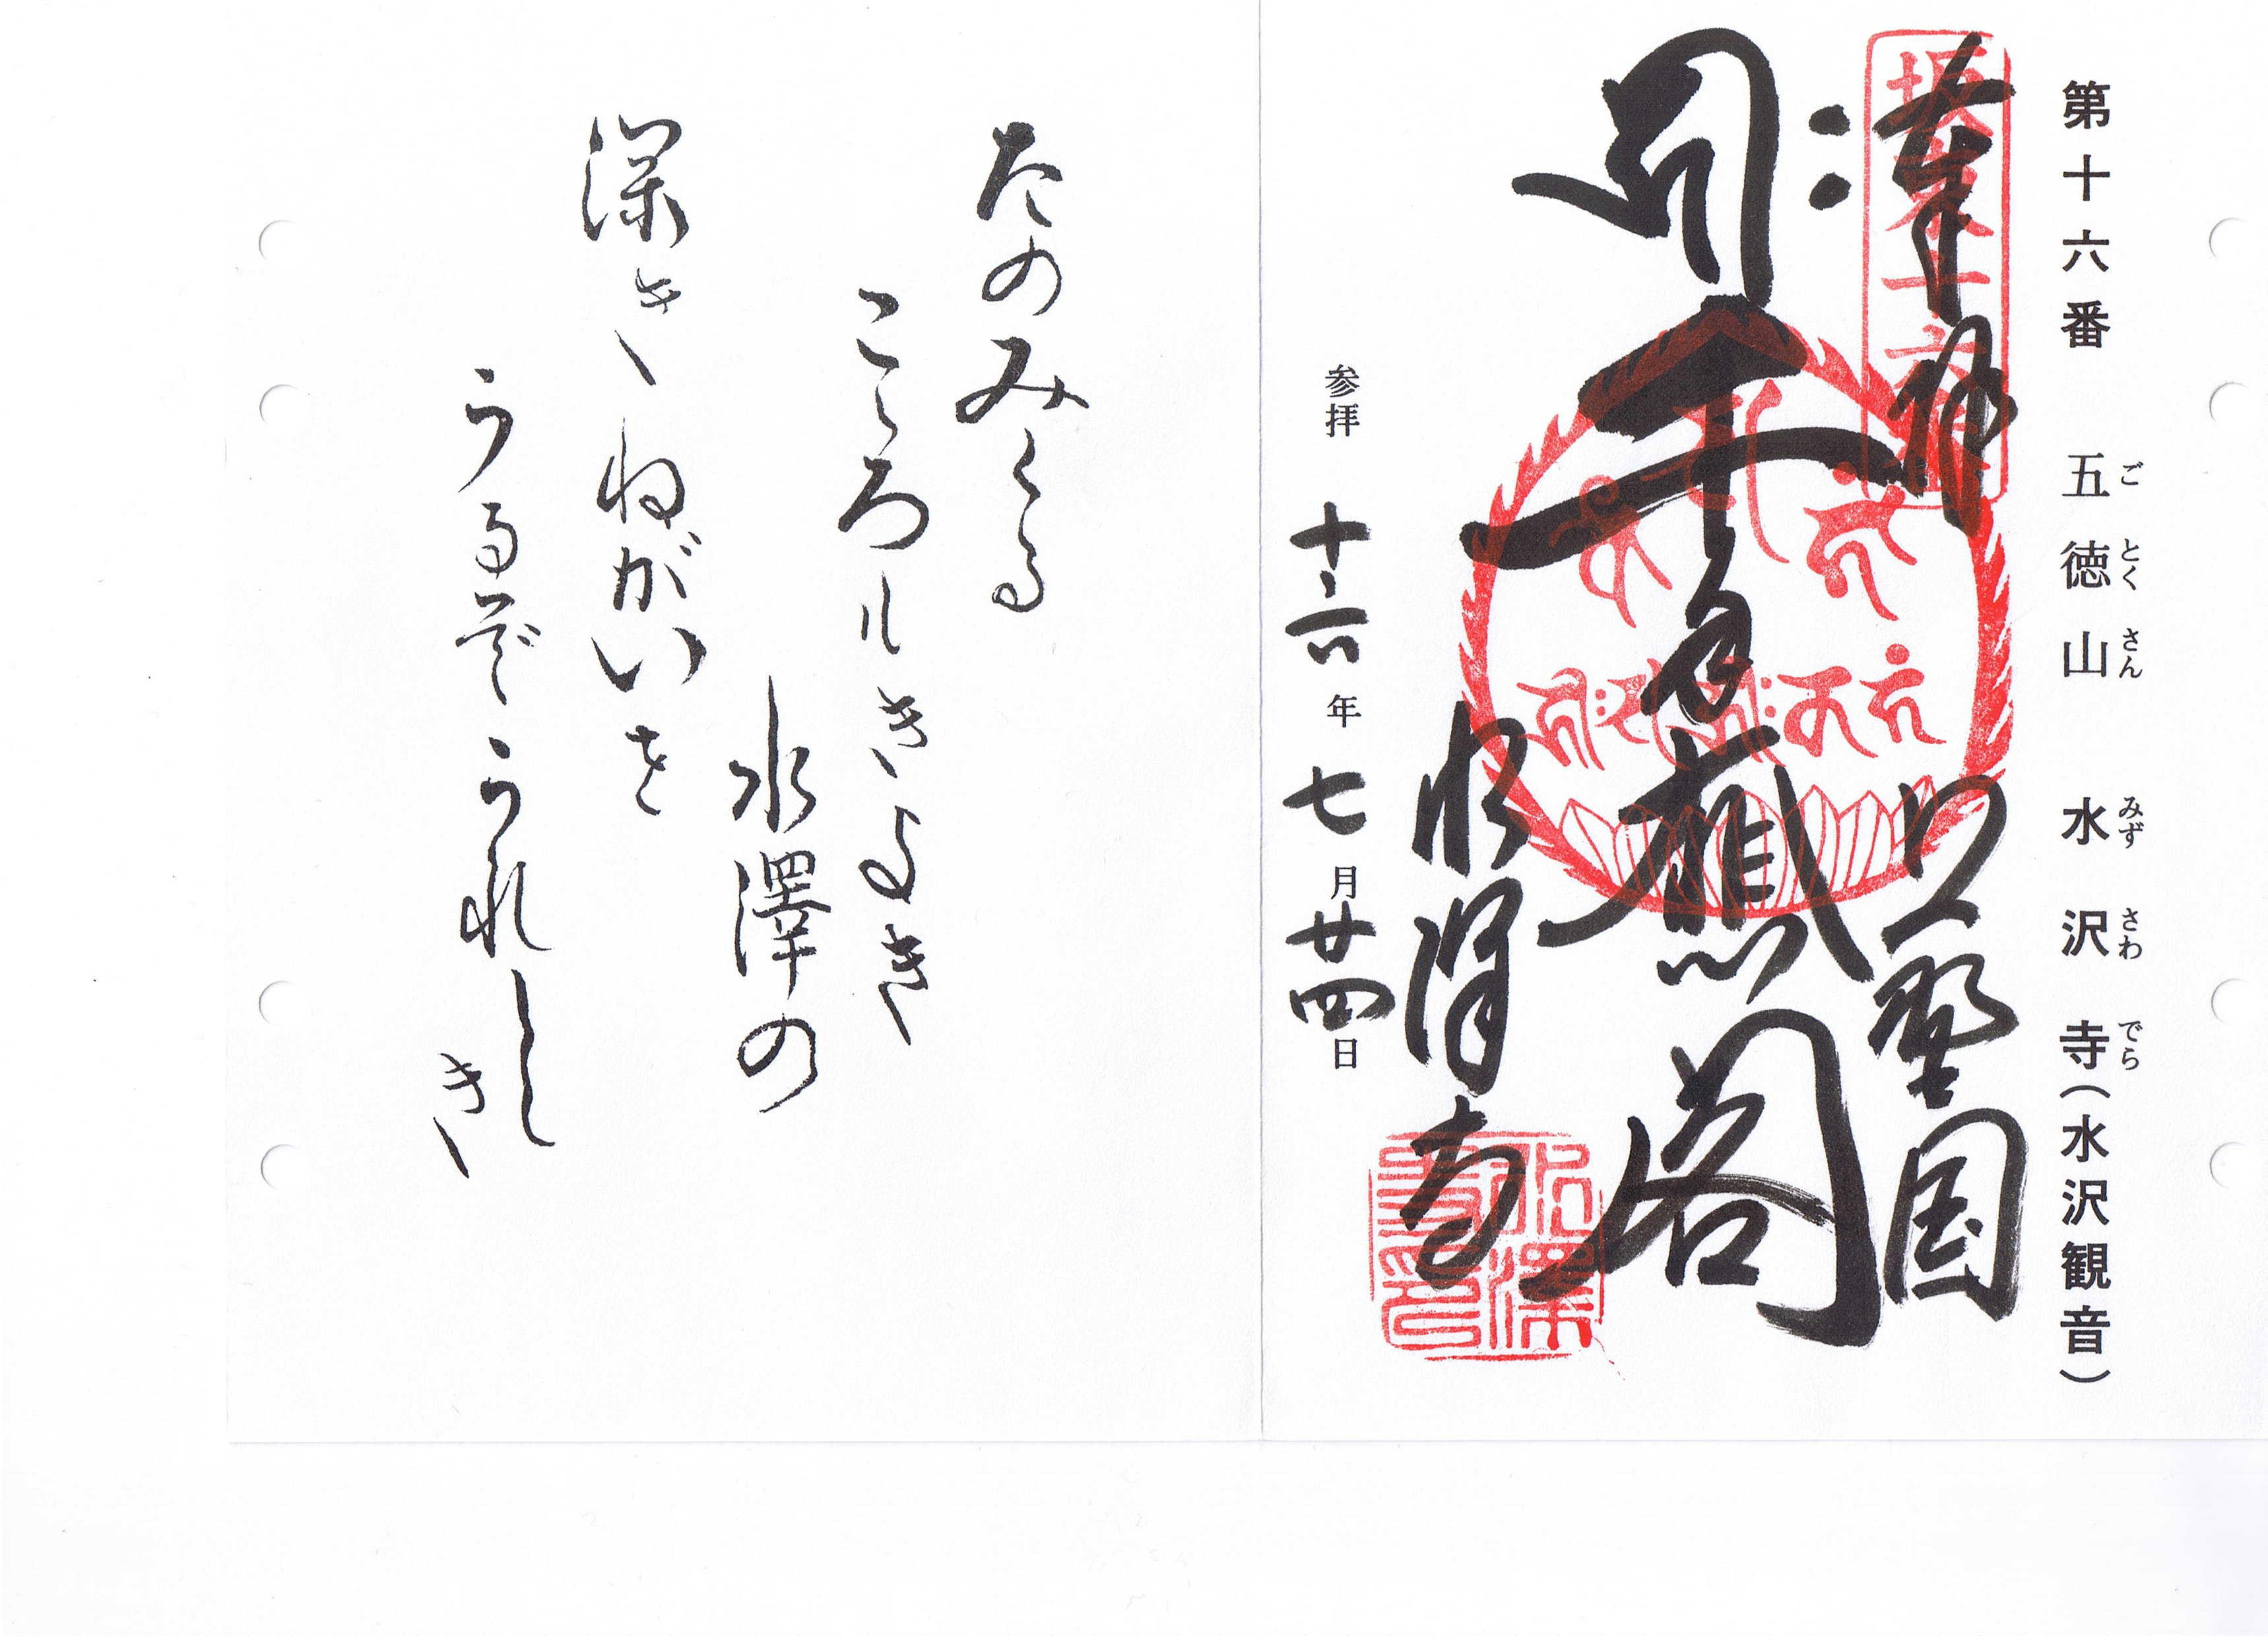 第十六番 五徳山 水沢寺(水沢観音)
ご とく さん みず さわ でら
奉拝 上野国
坂東十六番
千手大悲閣
水澤寺
水澤寺印
参拝 十六年 七月 廿四日
たのみくる
こゝろもきよき
水澤の
深きねがいを
うるぞうれしき